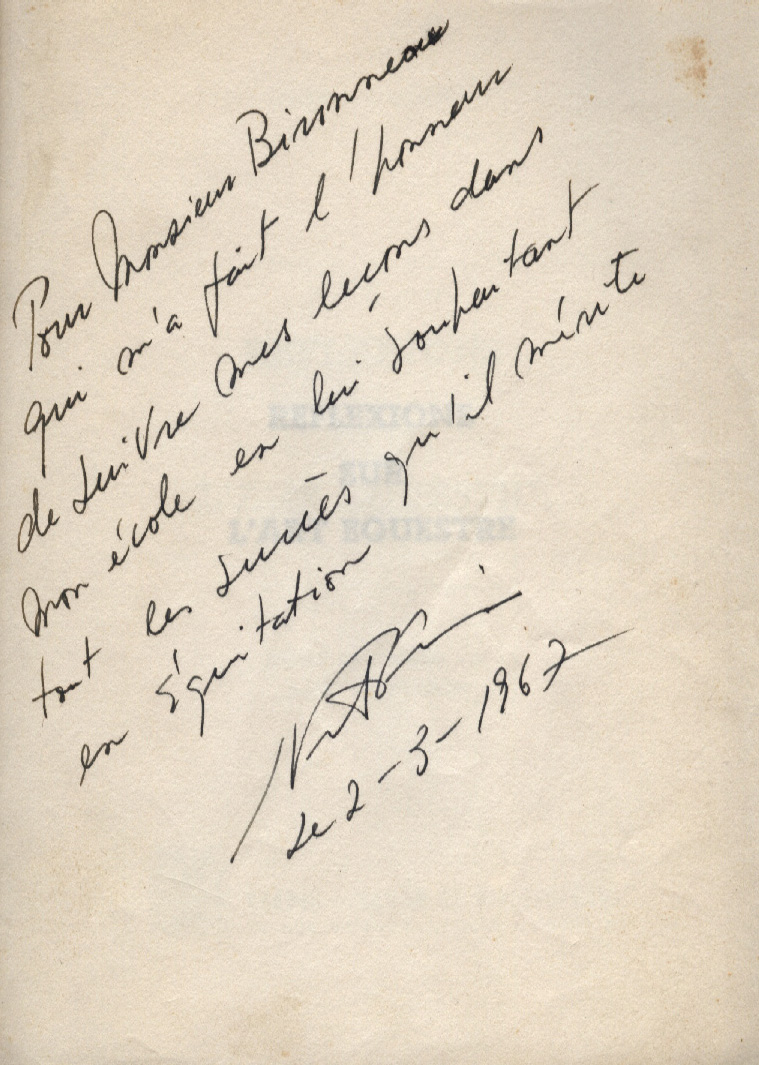 Pour Monsieur Bironneau
qui m'a fait l'honneur
de suivre mes leçons dans
mon école en lui souhaitant
tout les succès qu'il mérite
en équitation
Le 2-3-1967
REFLEXIONS
SUR
L'ART EQUESTRE